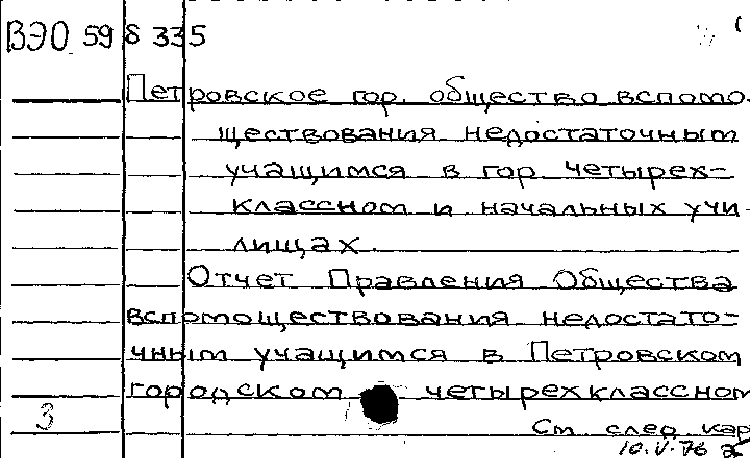 ВЭО 59 8 335
Петровское гор. общество вспомо-
ществования недостаточным
учащимся в гор. четырех-
классном и начальных учи-
лищах.
Отчет Правления Общества
вспомоществования недостато-
чным учащимся в Петровском
городском четырехклассном
3
См след кар
10.V.76